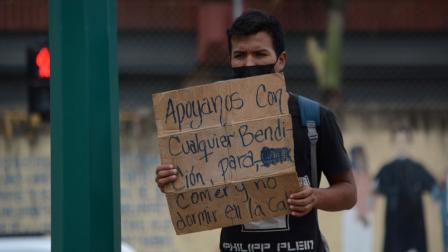 Apoyanos Con
Cualquier Bendi
Ción para,
Comer y no
dormir en la Ca
PHILIPP PLEIN